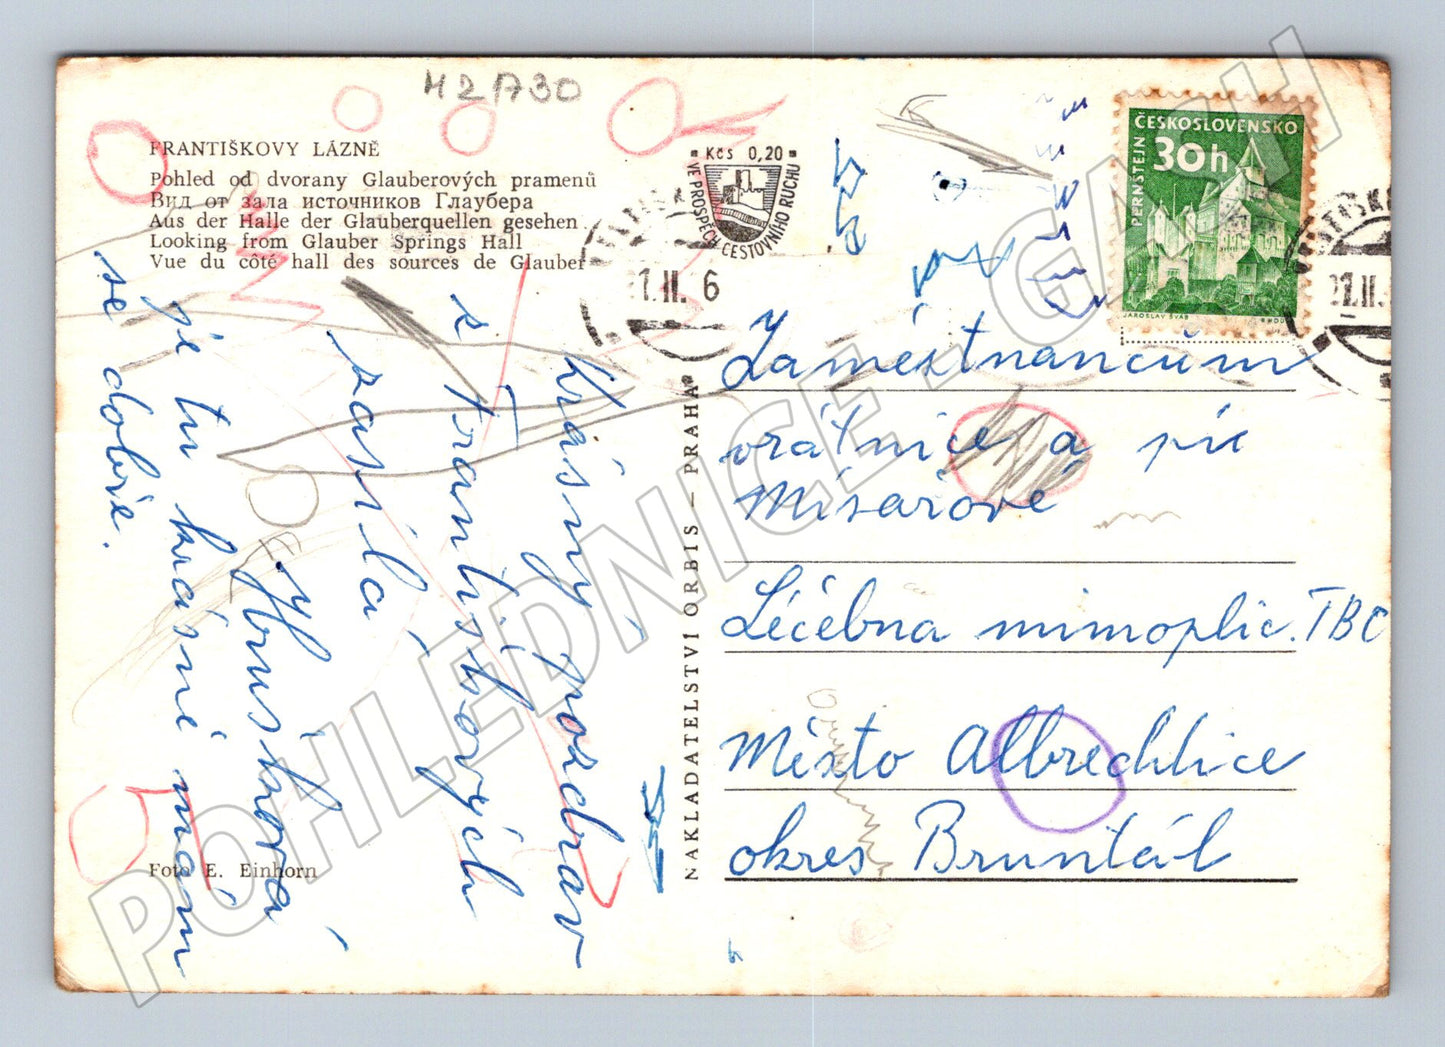 H2A730
FRANTIŠKOVY LÁZNĚ
Pohled od dvorany Glauberových pramenů
Вид от зала источников Глаубера
Aus der Halle der Glauberquellen gesehen
Looking from Glauber Springs Hall
Vue du côté hall des sources de Glauber
Kčs 0,20
VE PROSPĚCH CESTOVNÍHO RUCHU
21.II. 6
ČESKOSLOVENSKO
30h
PERNŠTEJN
JAROSLAV ŠVÁB
Krásný pozdrav
z Františkových
zasílá
Hrušková
je tu krásně mám
se dobře.
Foto E. Einhorn
NAKLADATELSTVÍ ORBIS — PRAHA
Zaměstnancům
vrátnice a pí
Mísařové
Léčebna mimoplic. TBC
Město Albrechtice
okres Bruntál
POHLEDNICE - GASH